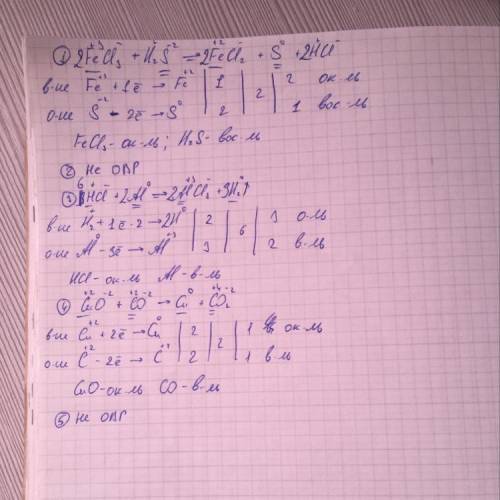 ① 2Fe⁺³Cl₃⁻ + H₂⁺S⁻² → 2Fe⁺²Cl₂⁻ + S⁰ + 2H⁺Cl⁻
в-ие Fe⁺³ + 1ē → Fe⁺² | 1 | 2 | 2 ок-ль
о-ие S⁻² - 2ē → S⁰ | 2 | | 1 вос-ль
FeCl₃ - ок-ль; H₂S - вос-ль
② Не ОВР
③ 6H⁺Cl⁻ + 2Al⁰ → 2Al⁺³Cl₃⁻ + 3H₂⁰↑
в-ие H₂⁺ + 1ē·2 → 2H⁰ | 2 | 6 | 3 о-ль
о-ие Al⁰ - 3ē → Al⁺³ | 3 | | 2 в-ль
HCl - ок-ль Al - в-ль
④ Cu⁺²O⁻² + C⁺²O⁻² → Cu⁰ + C⁺⁴O₂⁻²
в-ие Cu⁺² + 2ē → Cu⁰ | 2 | 2 | 1 ок-ль
о-ие C⁺² - 2ē → C⁺⁴ | 2 | | 1 в-ль
CuO - ок-ль CO - в-ль
⑤ Не ОВР